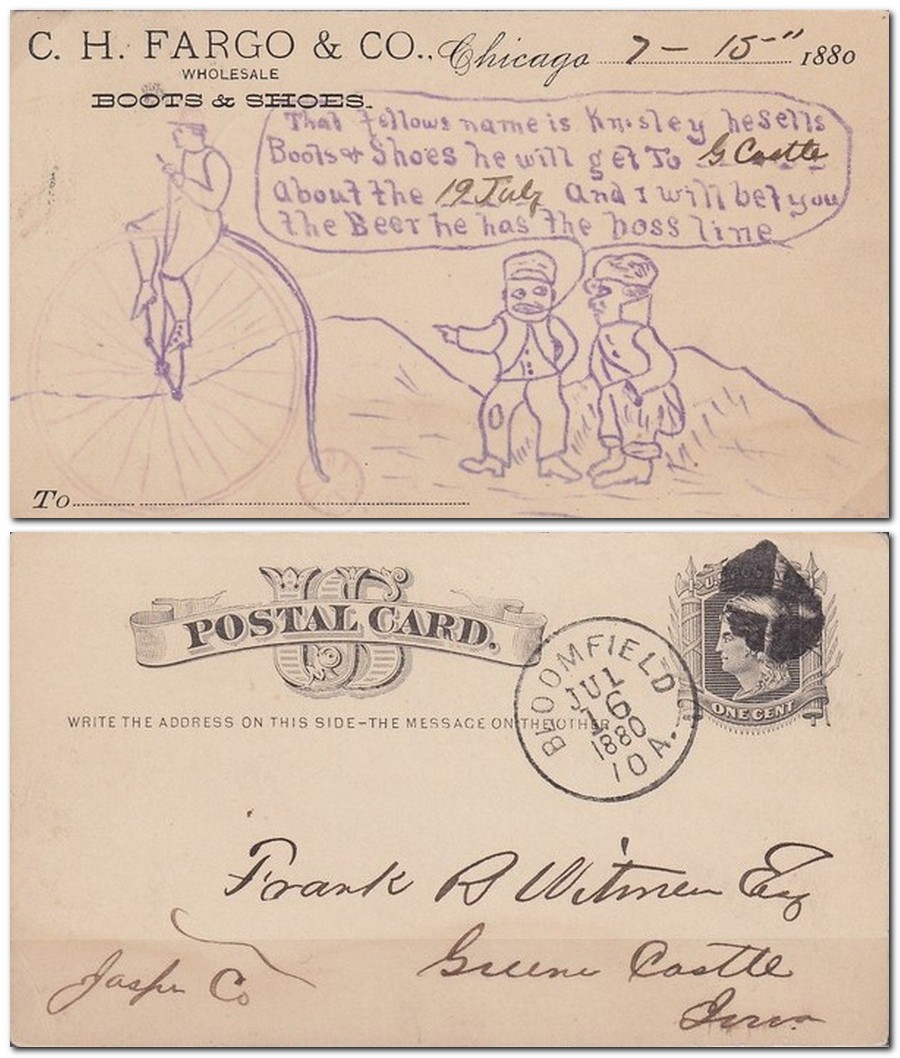 C. H. FARGO & CO., Chicago 7 - 15-" 1880
WHOLESALE
BOOTS & SHOES.
That fellows name is Knisley he sells
Boots & Shoes he will get To G Castle
About the 19 July And I will bet you
the Beer he has the boss line
To
US
POSTAL CARD.
WRITE THE ADDRESS ON THIS SIDE-THE MESSAGE ON THE OTHER
BLOOMFIELD
JUL
16
1880
IOA.
ONE CENT
Frank B Witmer Esq
Greene Castle
Jasper Co
Iowa